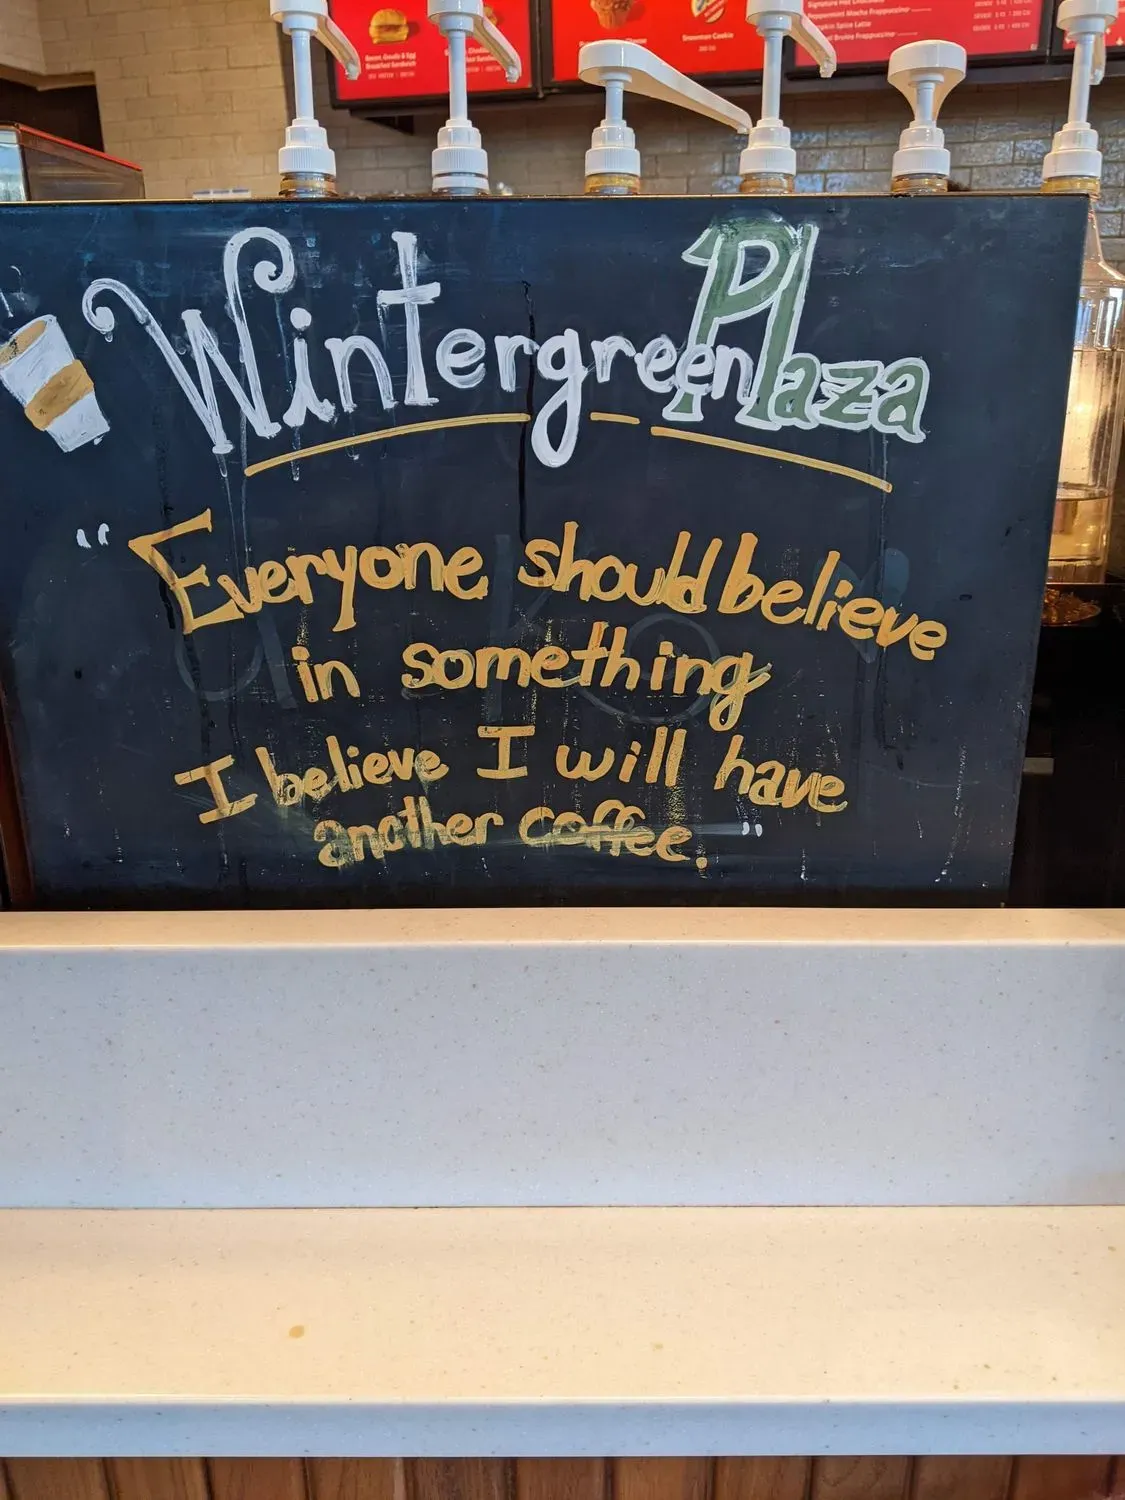 Bacon, Gouda & Egg
Breakfast Sandwich
Snowman Cookie
Signature Hot Chocolate
Peppermint Mocha Frappuccino
Pumpkin Spice Latte
Frappuccino
Wintergreen Plaza
"Everyone should believe
in something
I believe I will have
another coffee."